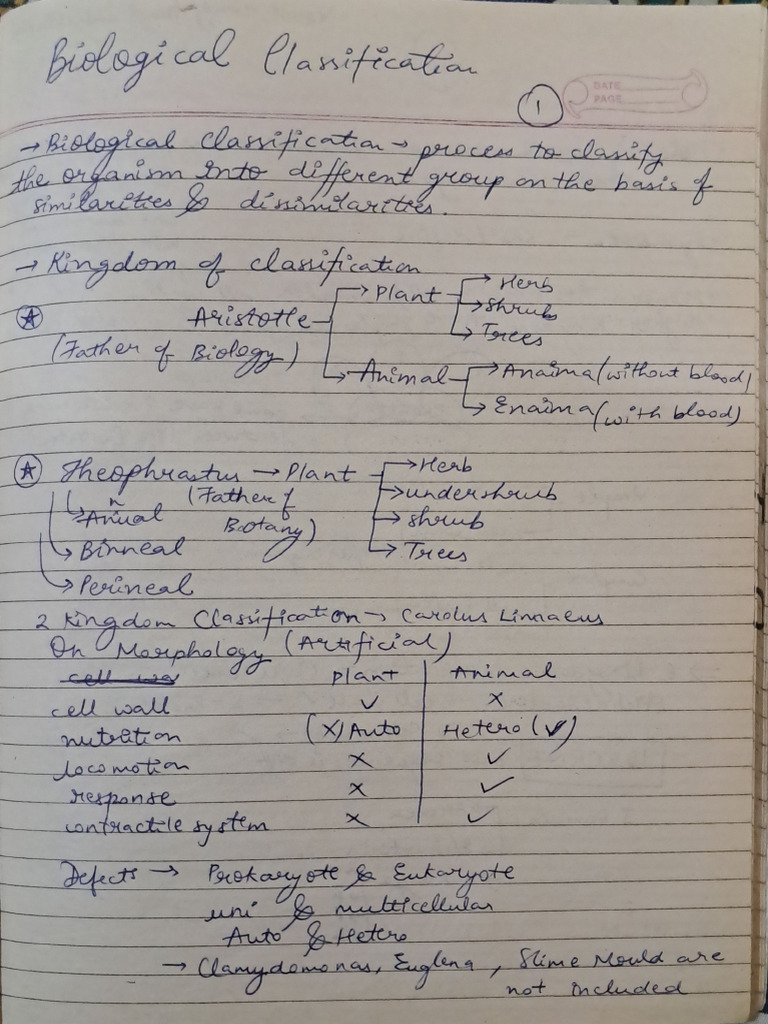 Biological Classification
1
DATE
PAGE
→ Biological Classification → process to classify
the organism into different group on the basis of
similarities & dissimilarities.
→ Kingdom of classification
Aristotle → Plant → Herb
→ Shrub
→ Trees
(Father of Biology)
→ Animal → Anaima (without blood)
→ Enaima (with blood)
Theophrastus → Plant → Herb
(Father of Bootany)
→ undershrub
→ shrub
→ Trees
→ Annual
→ Binneal
→ Perineal
2 Kingdom Classification → Carolus Linnaeus
On Morphology (Artificial)
Plant | Animal
cell wall ✓ | ×
nutrition (×) Auto | Hetero (✓)
locomotion × | ✓
response × | ✓
contractile system × | ✓
Defects → Prokaryote & Eukaryote
uni & multicellular
Auto & Hetero
→ Clamydomonas, Euglena, Slime Mould are
not included